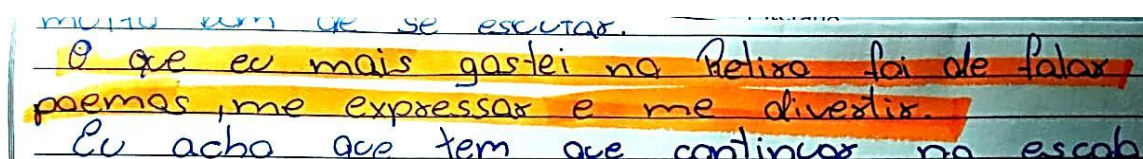 muito bom de se escutar.
O que eu mais gostei no Retiro foi de falar
poemas, me expressar e me divertir.
Eu acho que tem que continuar na escol